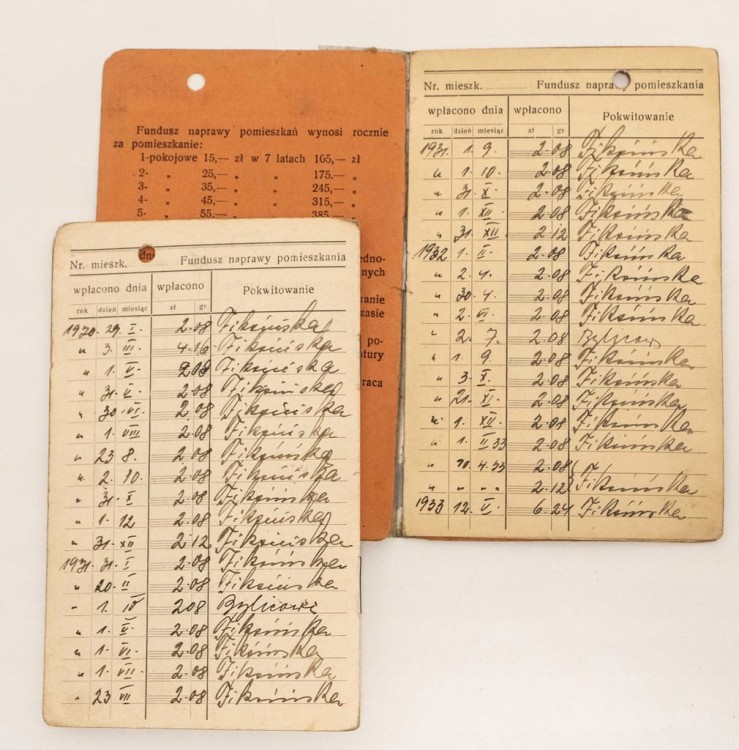 Fundusz naprawy pomieszkań wynosi rocznie
za pomieszkanie:
1-pokojowe 15,— zł w 7 latach 165,— zł
2- „ 25,— „ „ 175.— „
3- „ 35,— „ „ 245,— „
4- „ 45,— „ „ 315,— „
5- „ 55,— „ „ 385,—
Nr. mieszk. Fundusz naprawy pomieszkania
wpłacono dnia wpłacono Pokwitowanie
rok dzień miesiąc zł gr
1930 29. I. 2.08 Fiksińska
„ 3. III. 4.16 Fiksińska
„ 1. V. 2.08 Fiksińska
„ 31. V. 2.08 Fiksińska
„ 30. VI. 2.08 Fiksińska
„ 1. VIII 2.08 Fiksińska
„ 23 8. 2.08 Fiksińska
„ 2. 10. 2.08 Fiksińska
„ 31. X 2.08 Fiksińska
„ 1. 12 2.08 Fiksińska
„ 31. XII 2.12 Fiksińska
1931. 31. I. 2.08 Fiksińska
„ 20. II 2.08 Fiksińska
„ 1. IV 208
„ 1. V. 2.08 Fiksińska
„ 1. VI. 2.08 Fiksińska
„ 1. VII. 2.08 Fiksińska
„ 23 VII 2.08 Fiksińska
Nr. mieszk. Fundusz naprawy pomieszkania
wpłacono dnia wpłacono Pokwitowanie
rok dzień miesiąc zł gr
1931. 1. 9. 2.08 Fiksińska
„ 1. 10. 2.08 Fiksińska
„ 31. X. 2.08 Fiksińska
„ 1. XII. 2.08 Fiksińska
„ 31. XII. 2.12 Fiksińska
1932 1. II. 2.08 Fiksińska
„ 2. 4. 2.08 Fiksińska
„ 30. 4. 2.08 Fiksińska
„ 2. VI. 2.08 Fiksińska
„ 2. 7. 2.08
„ 1. 9 2.08 Fiksińska
„ 3. X. 2.08 Fiksińska
„ 21. XI. 2.08 Fiksińska
„ 1. XII. 2.08 Fiksińska
„ 1. II 33 2.08 Fiksińska
„ 4.33 2.08
„ „ „ 2.12 Fiksińska
1933 12. V. 6.24 Fiksińska